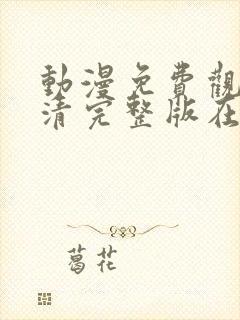 動漫免費觀
清完整版在
葛花